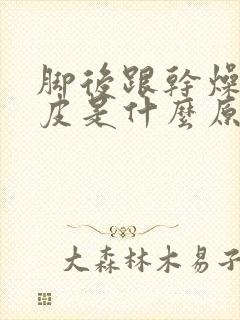 脚後跟幹燥
皮是什麼原
大森林木易子